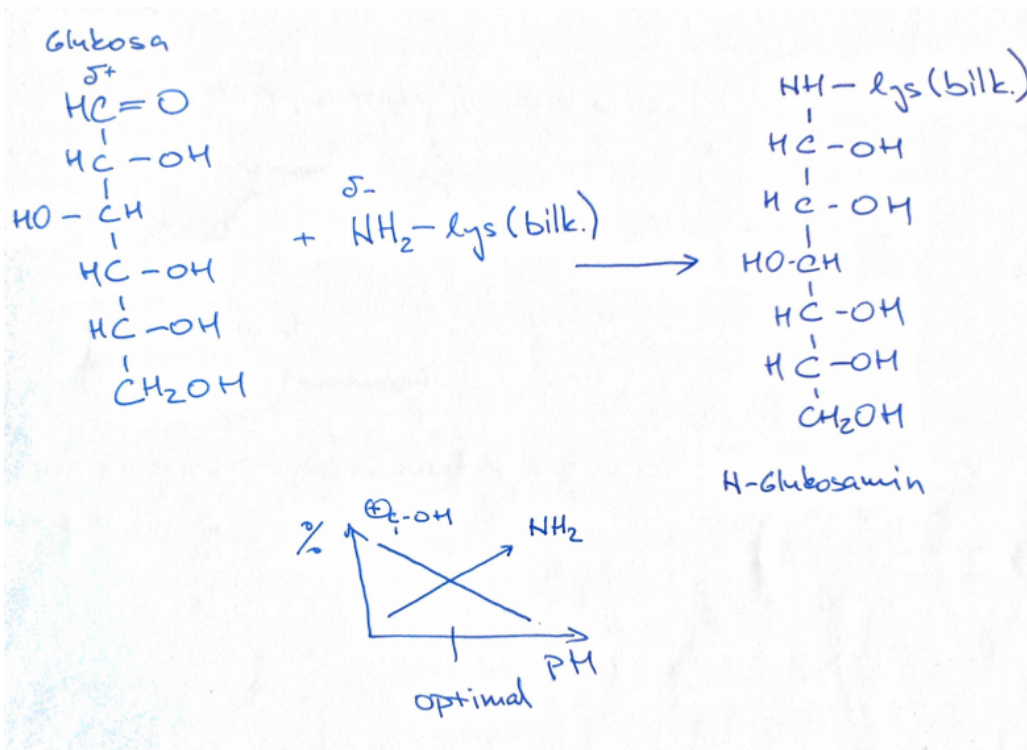 Glukosa
δ+
HC=O
HC-OH
HO-CH
HC-OH
HC-OH
CH₂OH
+
δ-
NH₂-lys(bilk.)
NH-lys(bilk.)
HC-OH
HC-OH
HO-CH
HC-OH
HC-OH
CH₂OH
N-Glukosamin
%
⊕C-OH
NH₂
PH
optimal